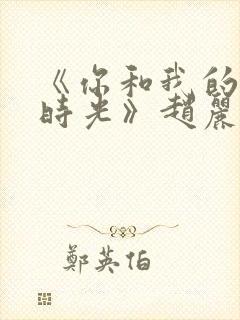 《你和我的
時光》趙麗
鄭英伯